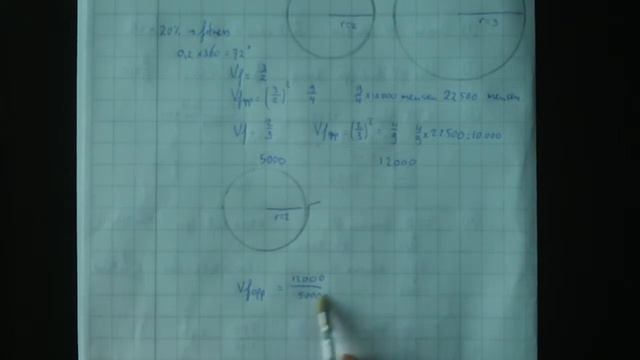 r=2
r=3
20% = fitness
0,2 x 360 = 72°
Vf = 3/2
Vfopp = (3/2)² 9/4 9/4 x 10.000 mensen 22500 mensen
Vf = 2/3 Vfopp = (2/3)² = 4/9 4/9 x 22500 = 10.000
5000 12000
r=2
Vfopp = 12000/5000